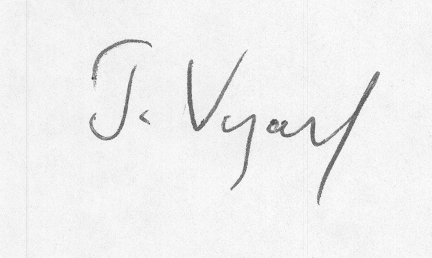 J. Vyas